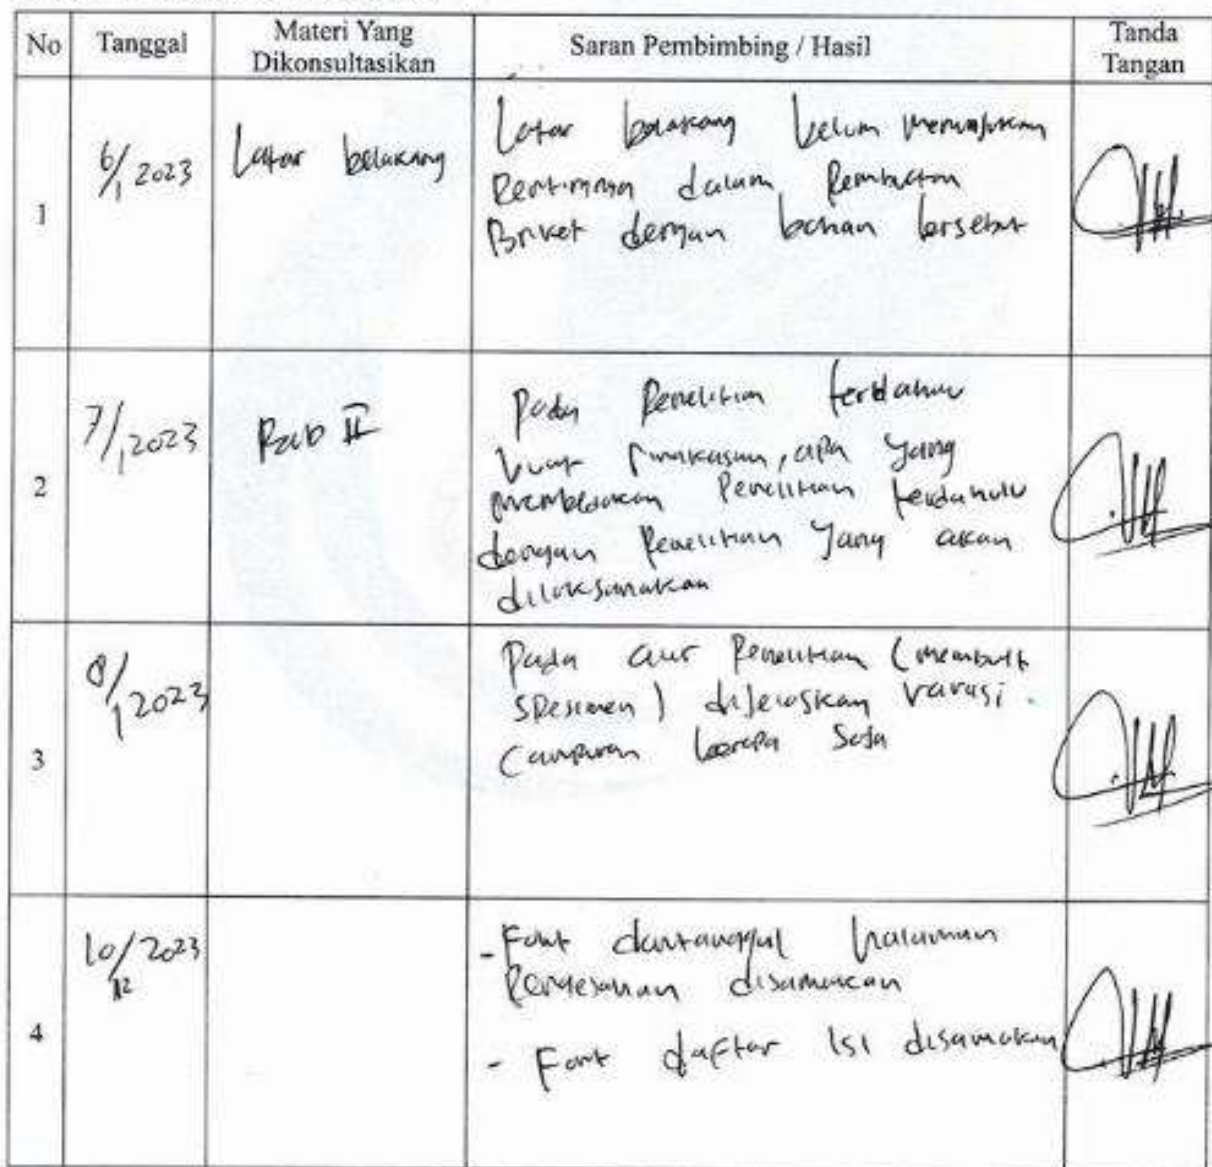 No
Tanggal
Materi Yang
Dikonsultasikan
Saran Pembimbing / Hasil
Tanda
Tangan
1
6/1 2023
Latar belakang
Latar belakang belum menunjukan
Pentingnya dalam Pembuatan
Briket dengan bahan tersebut
2
7/1 2023
Bab II
Pada Penelitian terdahulu
buat ringkasan, apa yang
membedakan Penelitian terdahulu
dengan Penelitian yang akan
dilaksanakan
3
8/1 2023
Pada alur Penelitian (membuat
spesimen) dijelaskan variasi
Campuran berapa saja
4
10/12 2023
- Font dan tanggal halaman
Pengesahan disamakan
- Font daftar isi disamakan